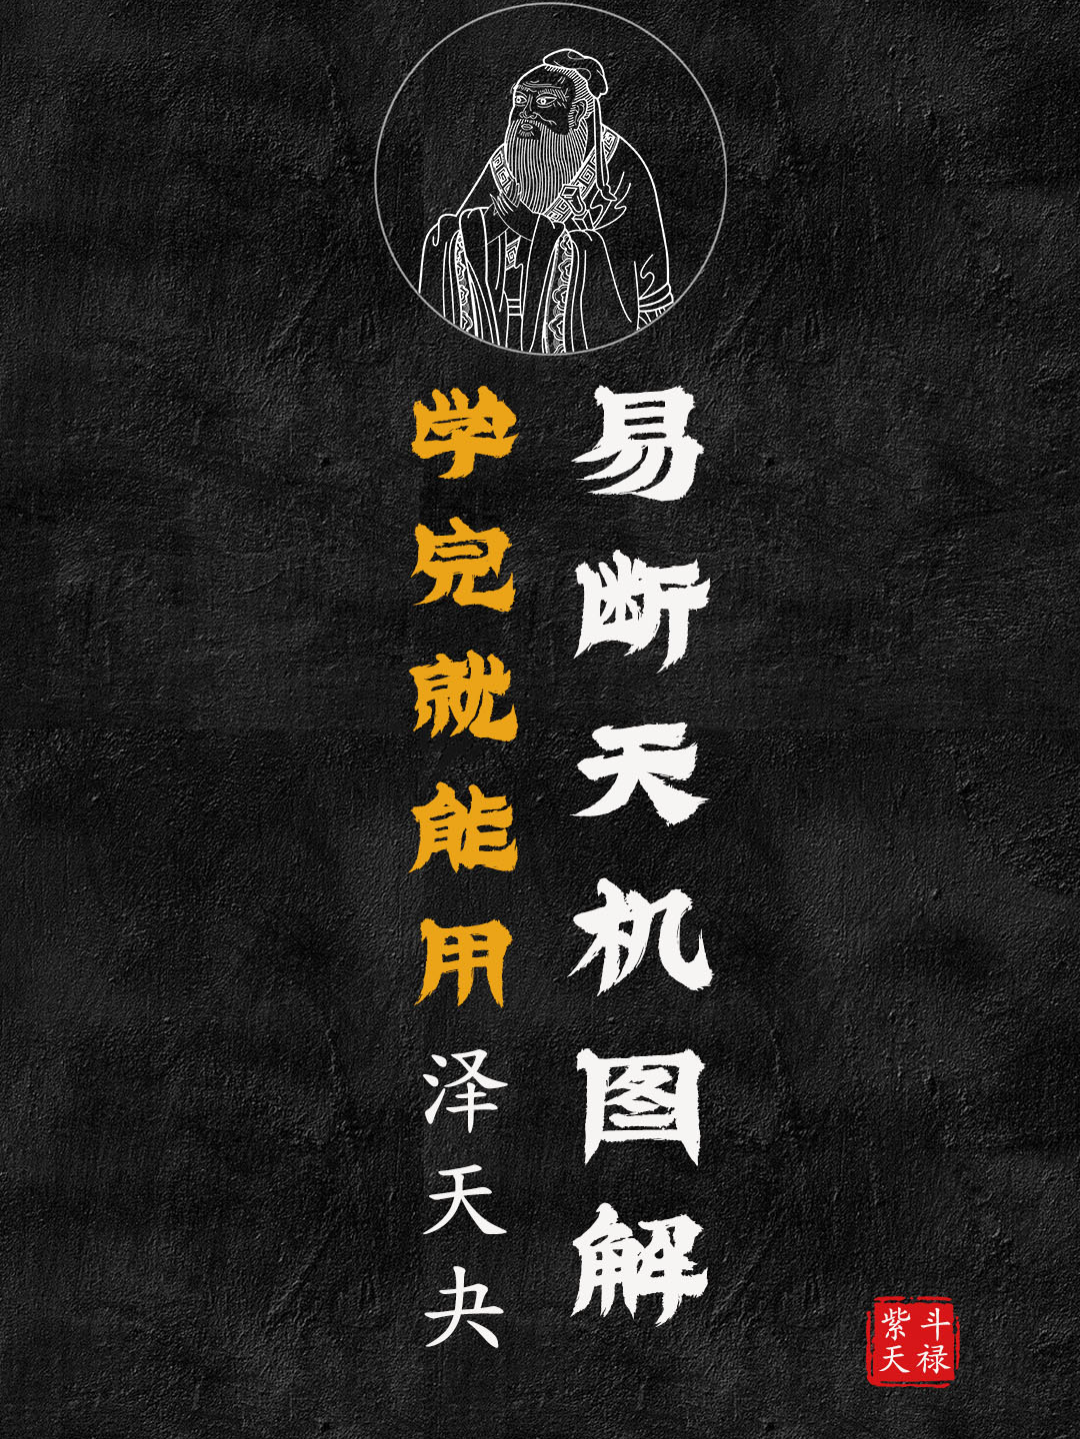 易断天机图解
学完就能用
泽天夬
紫斗
天禄